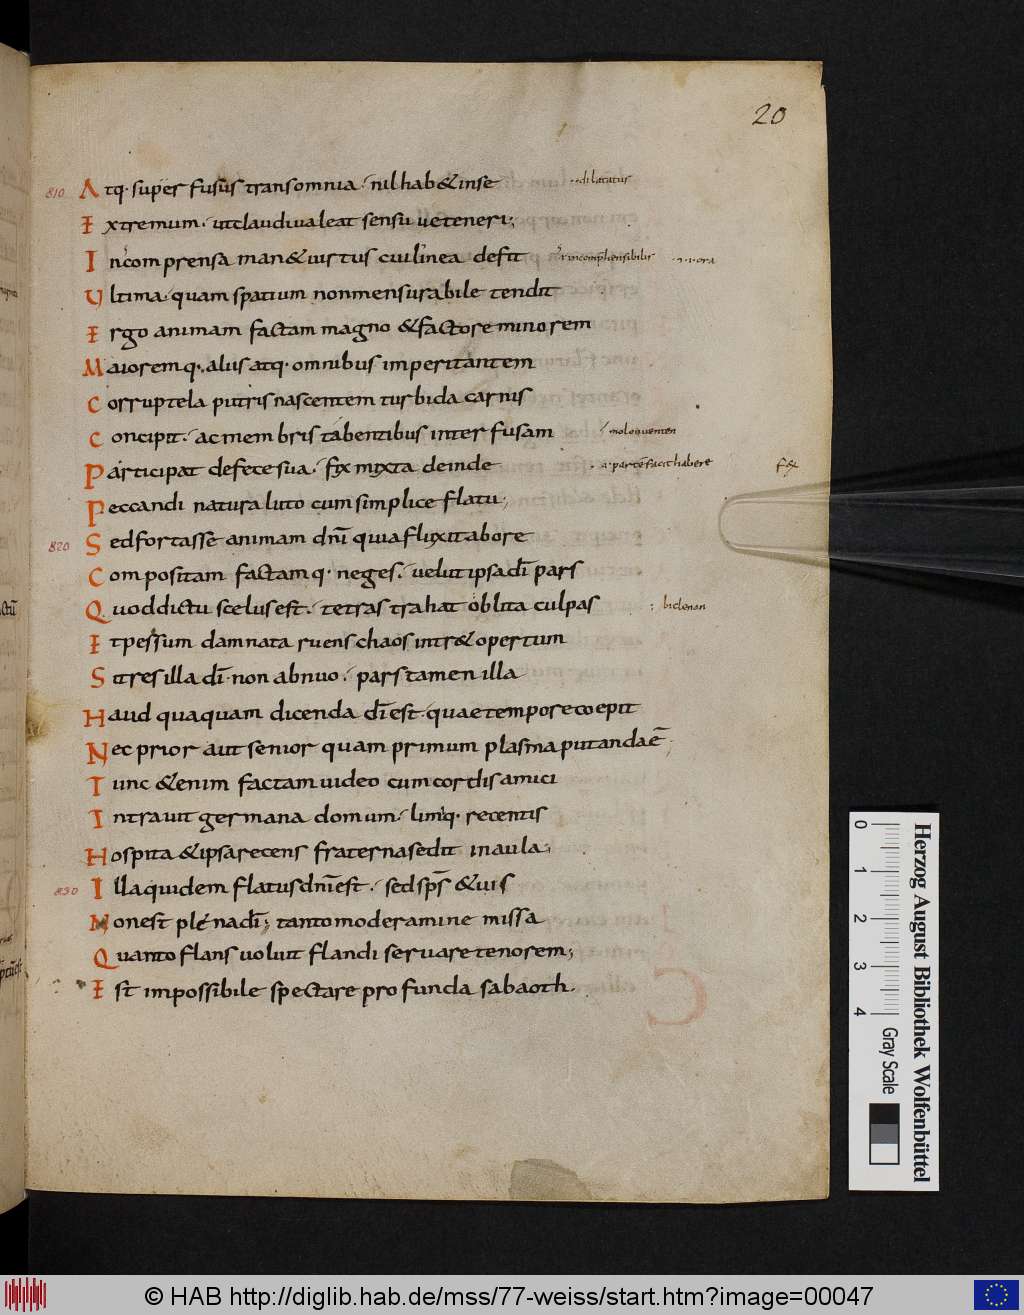 20
810 Atq· super fusus transomnia· nil hab&inse dilatatus
Extremum· utclaudiualeat sensu ueteneri;
Incomprensa man&uirtus cuilinea defit incomphensibilis ora
Ultima· quam spatium nonmensurabile tendit
Ergo animam factam magno &factore minorem
Maioremq·, aliis atq· omnibus imperitantem
Corruptela putris nascentem turbida carnis
Concipit· ac membris tabentibus inter fusam
Participat defecesua· fix mixta deinde a parte facit habere
Peccandi natura luto cumsimplice flatu;
820 Sedfortasse animam dnī quiafluxitabore
Compositam factamq· neges· uelut ipsa dī pars
Quoddictu scelusest· tetras trahat oblita culpas
Etpessum damnata ruens chaos intr&opertum
Sitres illa dī· non abnuo· pars tamen illa
Haud quaquam dicenda dī est· quae tempore coepit
Nec prior aut senior quam primum plasma putandaē;
Tunc &enim factam uideo cum cordis amici
Intrauit germana domum· limq· recentis
Hospita &ipsa recens fraterna sedit in aula;
830 Illa quidem flatus dnī est· sed sp̄s &uis
Non est plena dī; tanto moderamine missa
Quanto flans uoluit flandi seruare tenorem;
Est impossibile spectare profunda sabaoth·
0 1 2 3 4
Gray Scale
Herzog August Bibliothek Wolfenbüttel
© HAB http://diglib.hab.de/mss/77-weiss/start.htm?image=00047